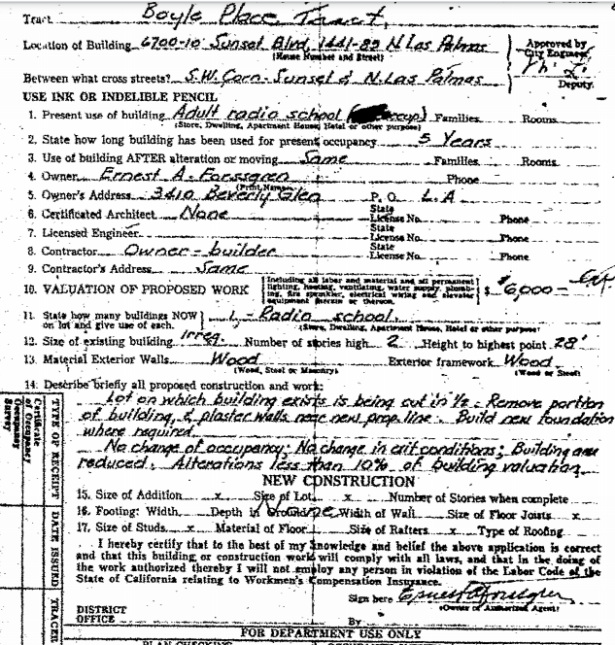 Tract Boyle Place Tract.
Location of Building 6700-10 Sunset Blvd, 1441-89 N Las Palmas
(House Number and Street)
Approved by
City Engineer
Deputy.
Between what cross streets? S.W. Corn. Sunset & N. Las Palmas
USE INK OR INDELIBLE PENCIL
1. Present use of building Adult radio school Families Rooms
(Store, Dwelling, Apartment House, Hotel or other purpose)
2. State how long building has been used for present occupancy 5 Years
3. Use of building AFTER alteration or moving Same Families Rooms
4. Owner Ernest A. Forssgren Phone
(Print Name)
5. Owner's Address 3410 Beverly Glen P. O. L. A
6. Certificated Architect None State License No. Phone
7. Licensed Engineer State License No. Phone
8. Contractor Owner-builder State License No. Phone
9. Contractor's Address Same
10. VALUATION OF PROPOSED WORK {Including all labor and material and all permanent lighting, heating, ventilating, water supply, plumbing, fire sprinkler, electrical wiring and elevator equipment therein or thereon.} $6,000-
11. State how many buildings NOW on lot and give use of each. 1 - Radio school.
(Store, Dwelling, Apartment House, Hotel or other purpose)
12. Size of existing building Irreg. Number of stories high 2 Height to highest point 28'
13. Material Exterior Walls Wood Exterior framework Wood
(Wood, Steel or Masonry) (Wood or Steel)
14. Describe briefly all proposed construction and work:
Lot on which building exists is being cut in ½. Remove portion
of building, & plaster walls near new prop. line. Build new foundation
where required.
No change of occupancy; No change in exit conditions; Building area
reduced. Alterations less than 10% of building valuation.
NEW CONSTRUCTION
15. Size of Addition x Size of Lot x Number of Stories when complete
16. Footing: Width Depth in Ground Width of Wall Size of Floor Joists x
17. Size of Studs x Material of Floor Size of Rafters x Type of Roofing
None
I hereby certify that to the best of my knowledge and belief the above application is correct
and that this building or construction work will comply with all laws, and that in the doing of
the work authorized thereby I will not employ any person in violation of the Labor Code of the
State of California relating to Workmen's Compensation Insurance.
Sign here Ernest A Forssgren
(Owner or Authorized Agent)
DISTRICT
OFFICE By
FOR DEPARTMENT USE ONLY
PLAN CHECKING
Certificate of Occupancy
Survey
TYPE OF RECEIPT
DATE ISSUED
TRACER